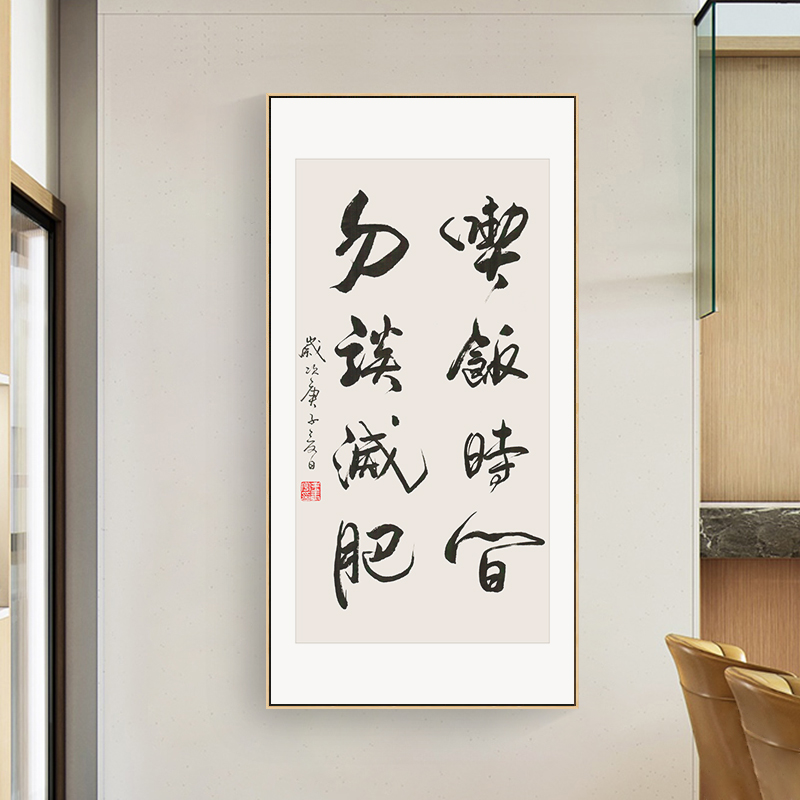 喫飯時間
勿談減肥
歲次庚子夏日